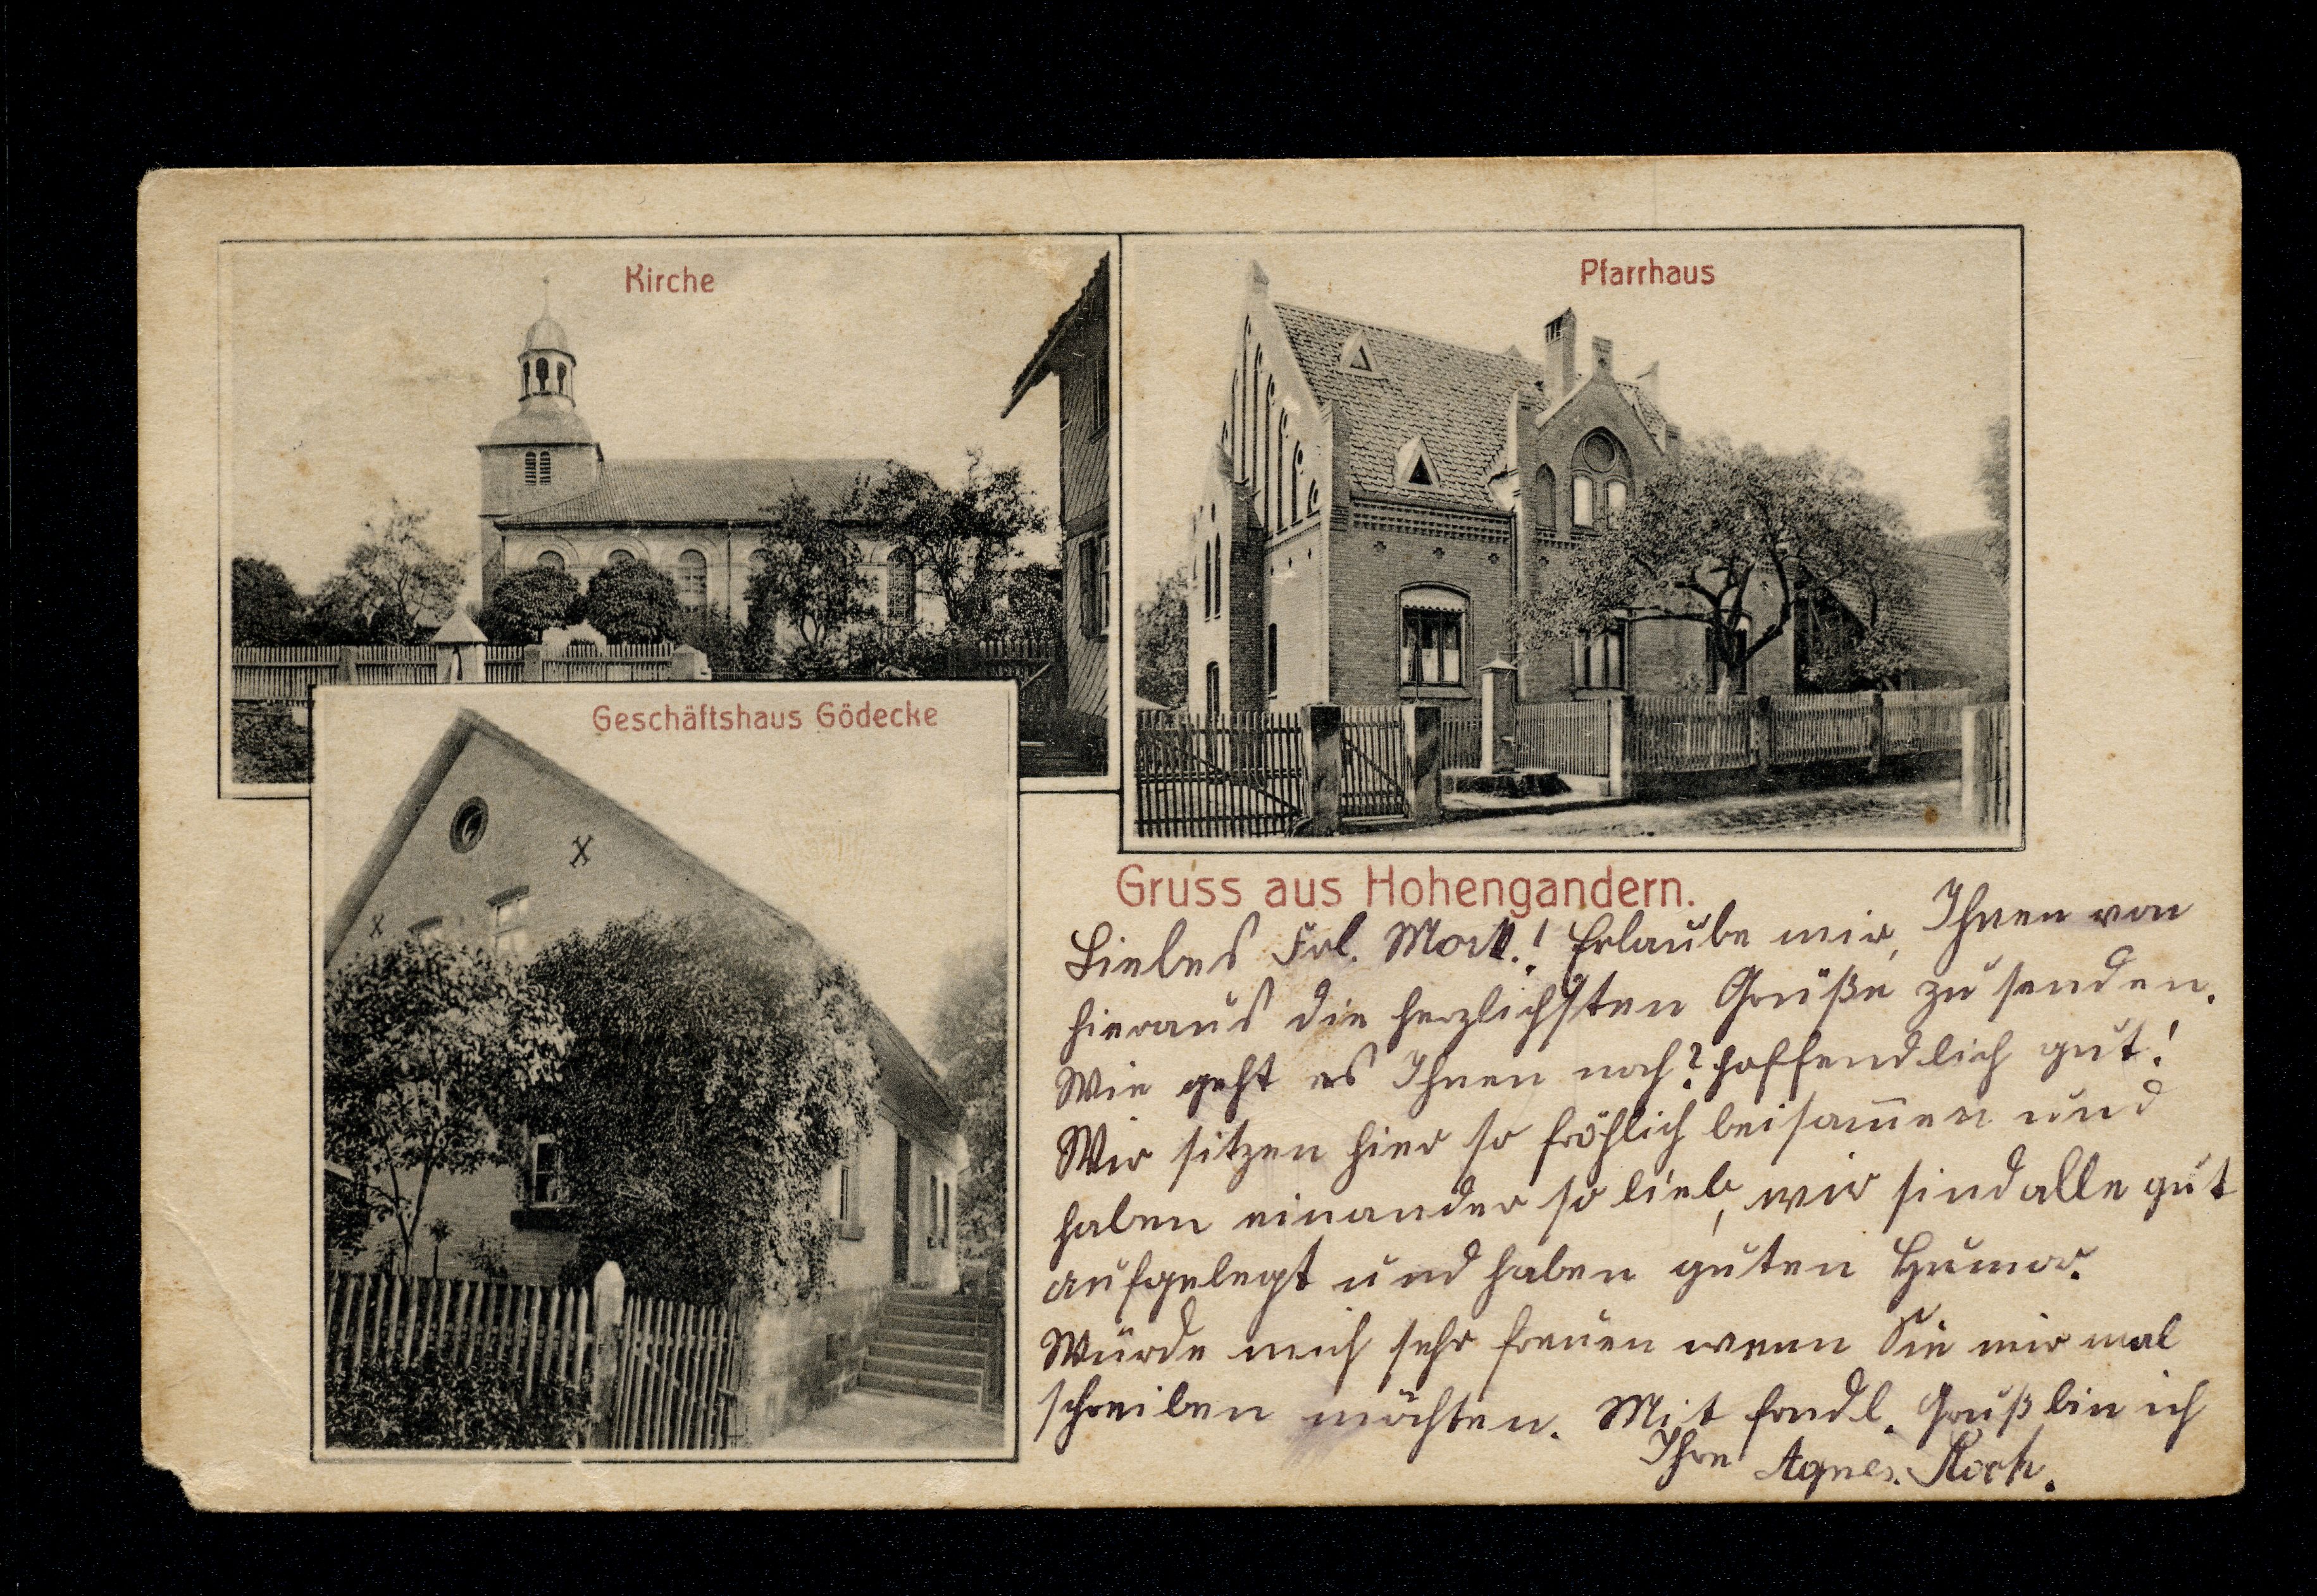 Kirche
Pfarrhaus
Geschäftshaus Gödecke
Gruss aus Hohengandern.
Liebes Frl. ! Erlaube mir, Ihnen von
hieraus die herzlichsten Grüße zu senden.
Wie geht es Ihnen noch? hoffendlich gut!
Wir sitzen hier so fröhlich beisam̅en und
haben einander so lieb, wir sind alle gut
aufgelegt und haben guten Humor.
Würde mich sehr freuen wenn Sie mir mal
schreiben möchten. Mit frndl. Gruß bin ich
Ihre Agnes Koch.